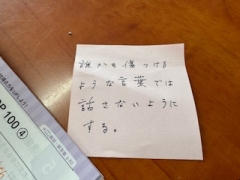 誰かを傷つける
ような言葉では
話さないように
する。
OP 100 ④